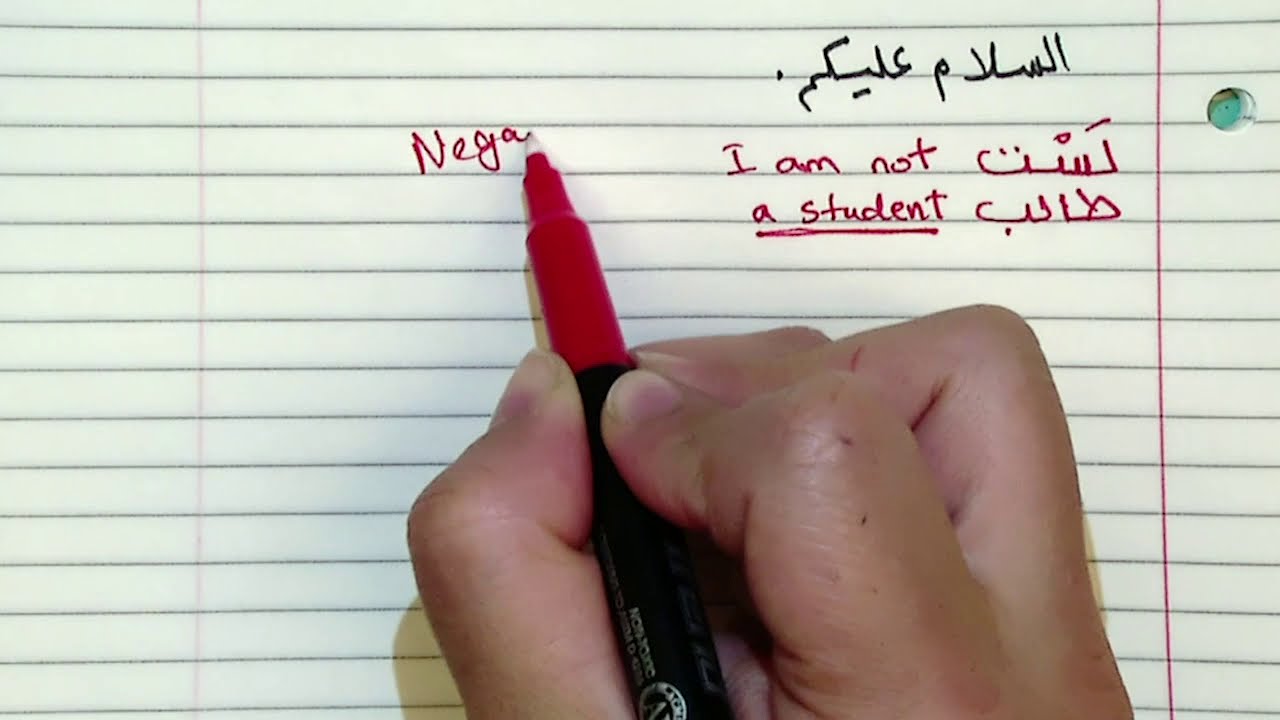 السلام عليكم.
Nega
I am not لَسْت
a student طالب
NON-TOXIC